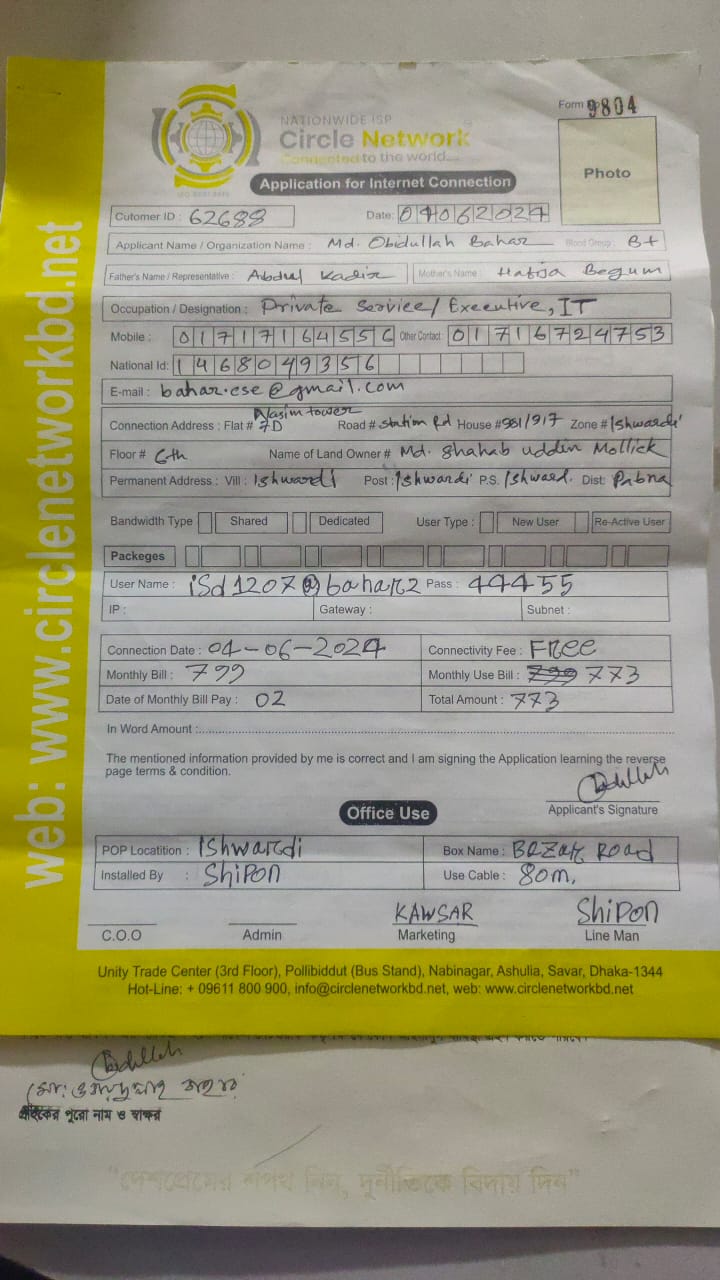 NATIONWIDE ISP
Circle Network
Connected to the world...
ISO 9001:2015
Form 9804
Photo
Application for Internet Connection
Cutomer ID : 62688 Date: 04062024
Applicant Name / Organization Name : Md. Obidullah Bahar Blood Group : B+
Father's Name / Representative : Abdul Kadir Mother's Name : Habija Begum
Occupation / Designation : Private Service/ Executive, IT
Mobile : 01717164556 Other Contact : 01716724753
National Id: 1468049356
E-mail : bahar.cse@gmail.com
Nasim tower
Connection Address : Flat # 7D Road # Station Rd House # 981/917 Zone # Ishwardi
Floor # 6th Name of Land Owner # Md. Shahab uddin Mollick
Permanent Address : Vill : Ishwardi Post : Ishwardi P.S. Ishward. Dist: Pabna
Bandwidth Type Shared Dedicated User Type : New User Re-Active User
Packeges
User Name : iSd1207@bahar2 Pass : 44455
IP : Gateway : Subnet :
Connection Date : 04-06-2024 Connectivity Fee : FRee
Monthly Bill : 799 Monthly Use Bill : 799 773
Date of Monthly Bill Pay : 02 Total Amount : 773
In Word Amount :
The mentioned information provided by me is correct and I am signing the Application learning the reverse
page terms & condition.
Applicant's Signature
Office Use
POP Locatition : Ishwardi Box Name : BAZAR ROAD
Installed By : ShiPON Use Cable : 80m.
KAWSAR ShiPON
C.O.O Admin Marketing Line Man
Unity Trade Center (3rd Floor), Pollibiddut (Bus Stand), Nabinagar, Ashulia, Savar, Dhaka-1344
Hot-Line: + 09611 800 900, info@circlenetworkbd.net, web: www.circlenetworkbd.net
web: www.circlenetworkbd.net
মো: ওবায়দুল্লাহ বাহার
গ্রাহকের পুরো নাম ও স্বাক্ষর
"দেশপ্রেমের শপথ নিন, দুর্নীতিকে বিদায় দিন"